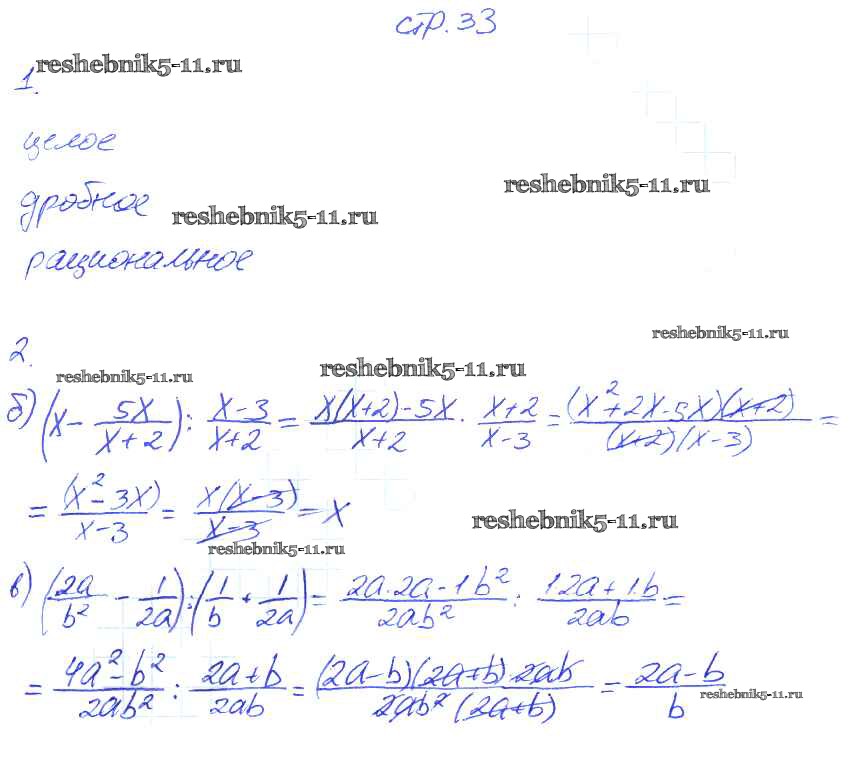 стр. 33
reshebnik5-11.ru
1.
целое
reshebnik5-11.ru
дробное
reshebnik5-11.ru
рациональное
reshebnik5-11.ru
2.
reshebnik5-11.ru
reshebnik5-11.ru
б) (x - 5x/(x+2)) : (x-3)/(x+2) = (x(x+2)-5x)/(x+2) · (x+2)/(x-3) = ((x²+2x-5x)(x+2))/((x+2)(x-3)) =
= (x²-3x)/(x-3) = x(x-3)/(x-3) = x
reshebnik5-11.ru
reshebnik5-11.ru
в) (2a/b² - 1/2a) : (1/b + 1/2a) = (2a·2a-1b²)/2ab² : (1·2a+1·b)/2ab =
= (4a²-b²)/2ab² : (2a+b)/2ab = ((2a-b)(2a+b)·2ab)/(2ab²(2a+b)) = (2a-b)/b
reshebnik5-11.ru